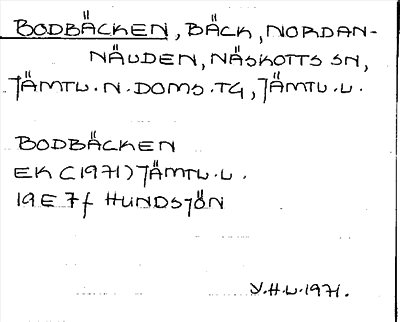 BODBÄCKEN, BÄCK, NORDAN-
NÄLDEN, NÄSKOTTS SN,
JÄMTL.N.DOMS.TG, JÄMTL.L.
BODBÄCKEN
EK (1971) JÄMTL.L.
19E 7f HUNDSJÖN
V.H.L.1971.